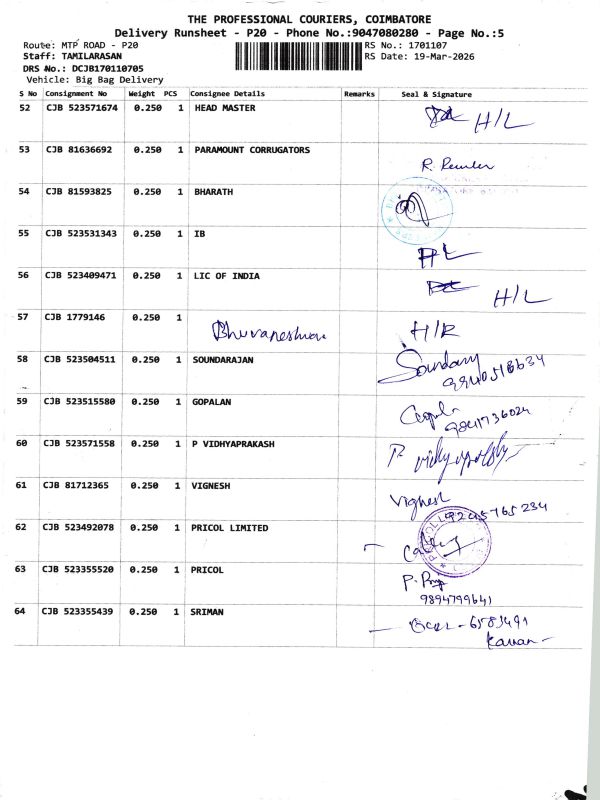 THE PROFESSIONAL COURIERS, COIMBATORE
Delivery Runsheet - P20 - Phone No.:9047080280 - Page No.:5
Route: MTP ROAD - P20 RS No.: 1701107
Staff: TAMILARASAN RS Date: 19-Mar-2026
DRS No.: DCJB170110705
Vehicle: Big Bag Delivery
S No Consignment No Weight PCS Consignee Details Remarks Seal & Signature
52 CJB 523571674 0.250 1 HEAD MASTER H/L
53 CJB 81636692 0.250 1 PARAMOUNT CORRUGATORS R.
54 CJB 81593825 0.250 1 BHARATH
55 CJB 523531343 0.250 1 IB H/L
56 CJB 523409471 0.250 1 LIC OF INDIA H/L
57 CJB 1779146 0.250 1 Bhuvaneshwari H/R
58 CJB 523504511 0.250 1 SOUNDARAJAN
59 CJB 523515580 0.250 1 GOPALAN Gopal
9841736024
60 CJB 523571558 0.250 1 P VIDHYAPRAKASH
61 CJB 81712365 0.250 1 VIGNESH Vignesh
9245765234
62 CJB 523492078 0.250 1 PRICOL LIMITED
63 CJB 523355520 0.250 1 PRICOL
9894799641
64 CJB 523355439 0.250 1 SRIMAN